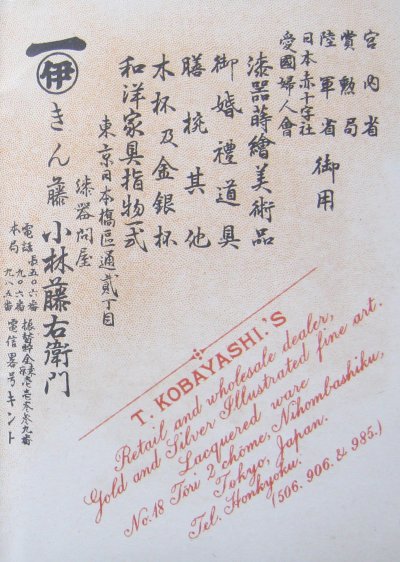 宮内省
賞勲局
陸軍省
日本赤十字社
愛國婦人會
御用
漆器蒔繪美術品
御婚禮道具
膳椀其他
木杯及金銀杯
和洋家具指物一式
東京日本橋區通貳丁目
漆器問屋
伊
きん藤 小林藤右衛門
電話 長五〇六番
九〇六番
本局 九八五番
電信畧号キント
T. KOBAYASHI.'S
Retail and wholesale dealer,
Gold and Silver Illustrated fine art.
Lacquered ware
No. 18 Tōri 2 chōme, Nihombashiku,
Tokyo, Japan.
Tel. Honkyoku.
(506. 906. & 985.)